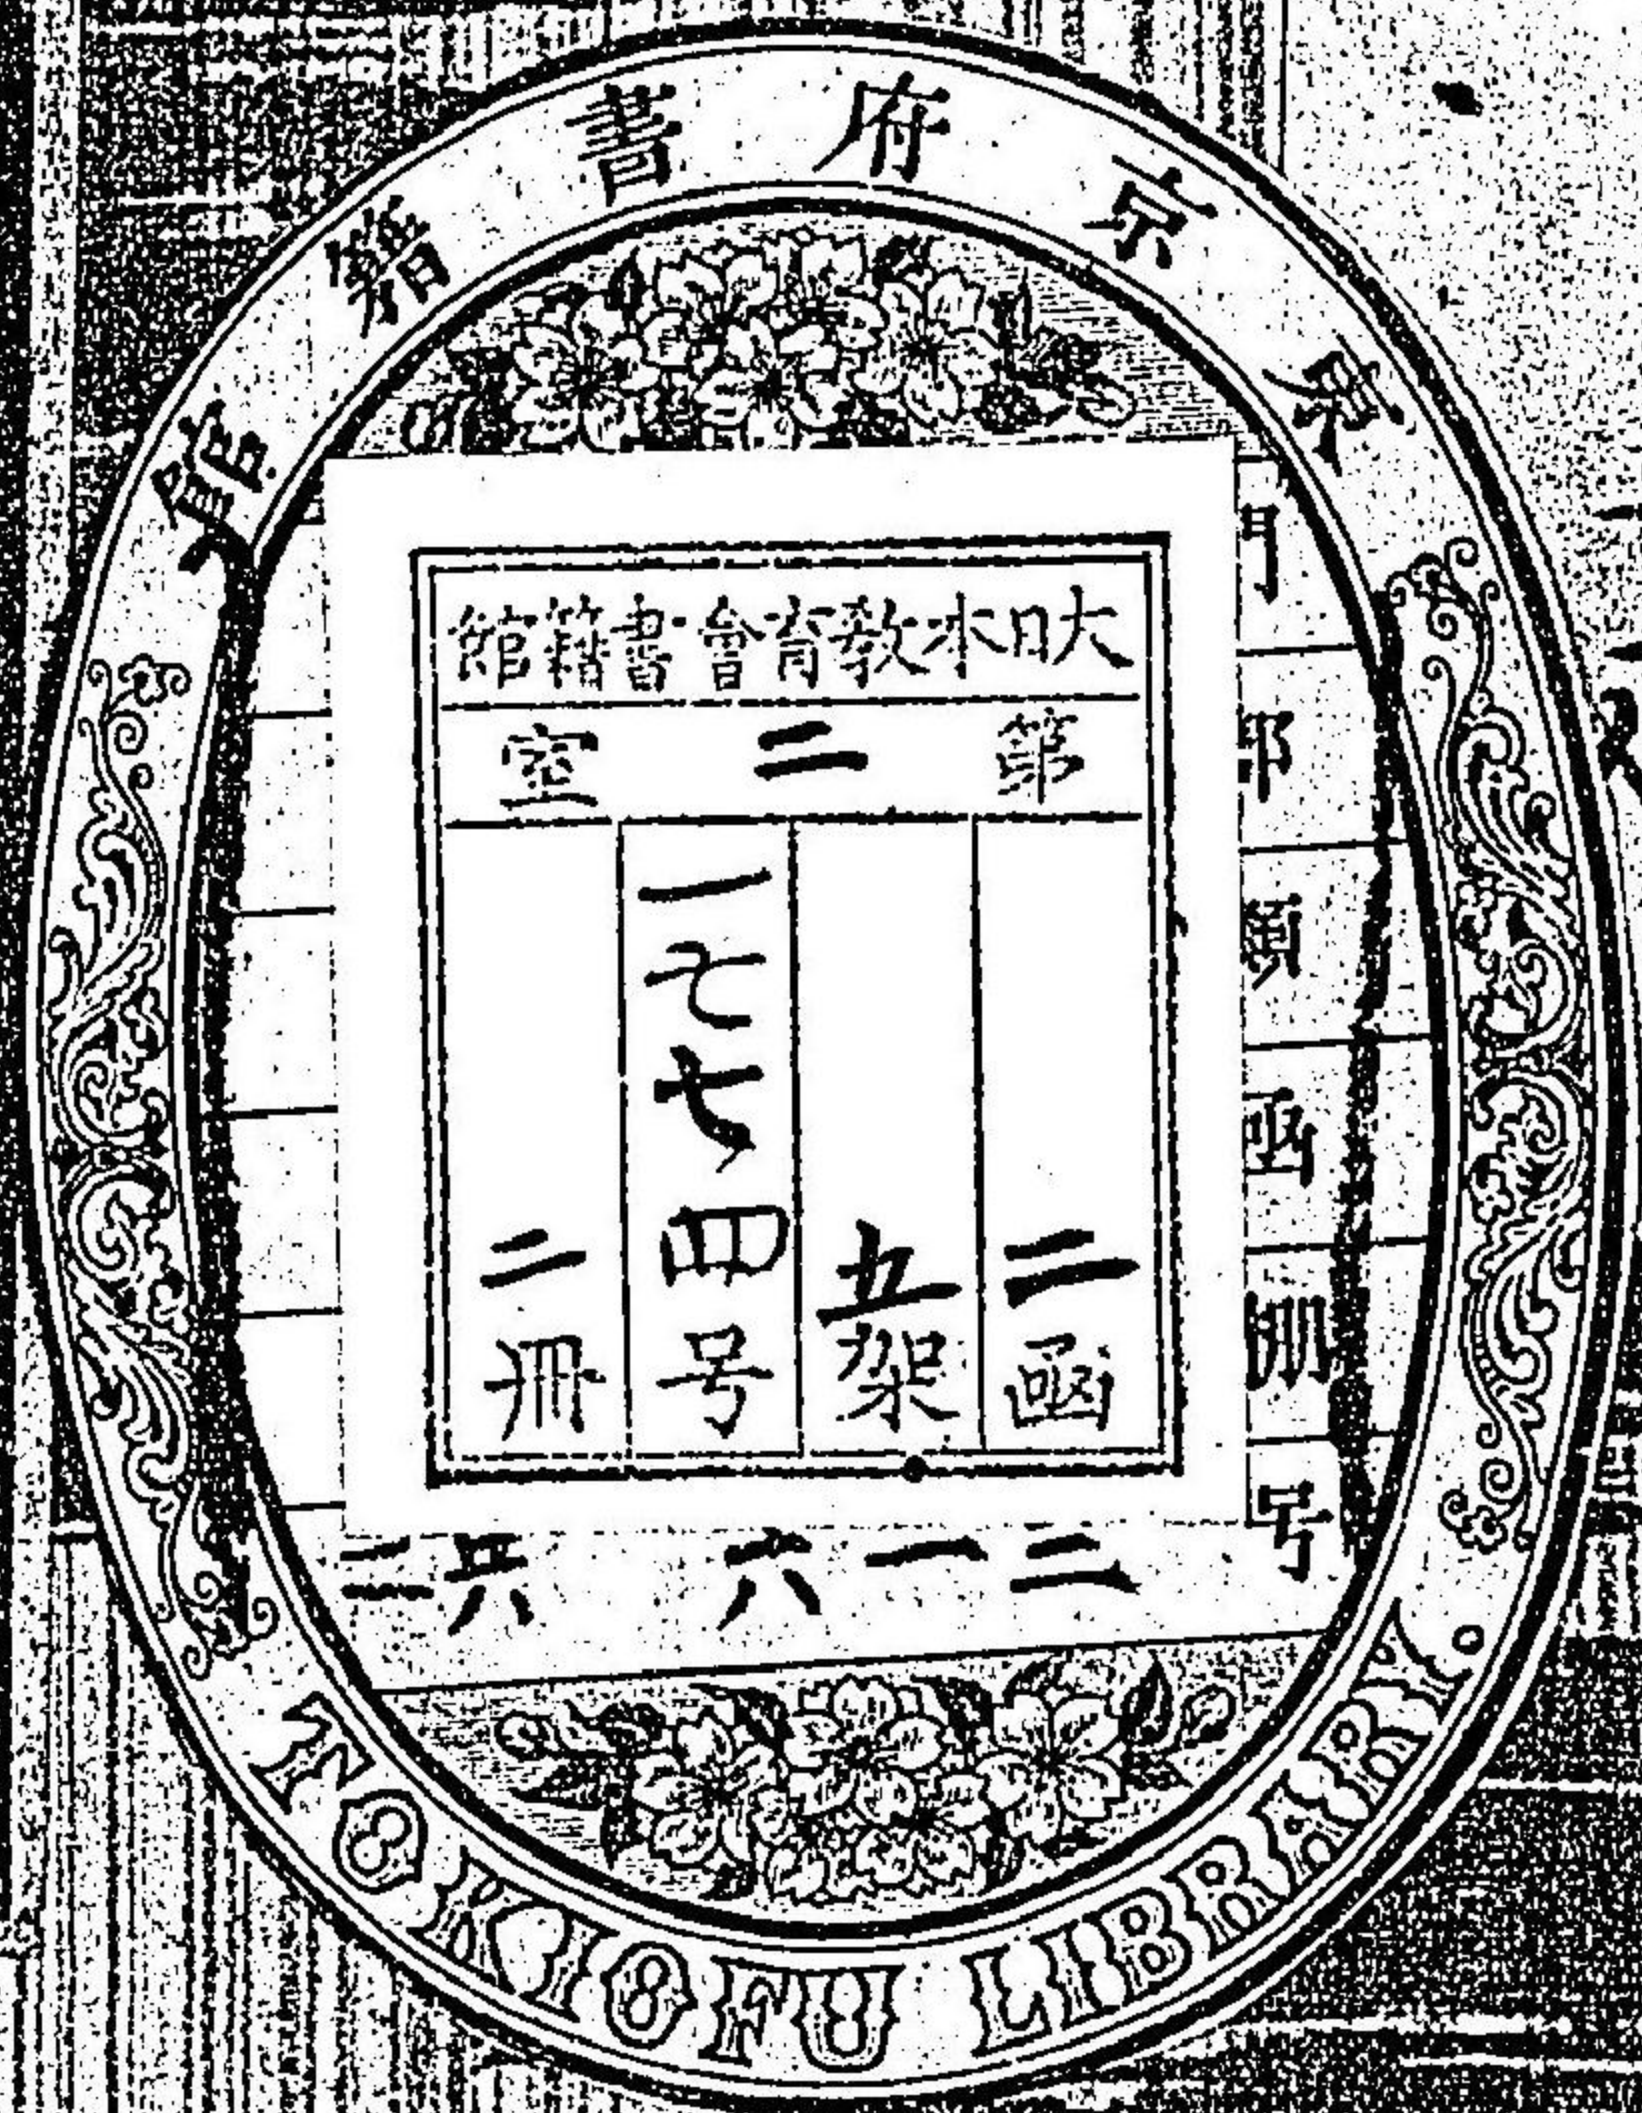 東京府書籍館
大日本教育會書籍館
第二室
二函
五架
一七七四号
二冊
門
部
類
函
冊
号
三一六
共二
TOKIOFU LIBRARY.